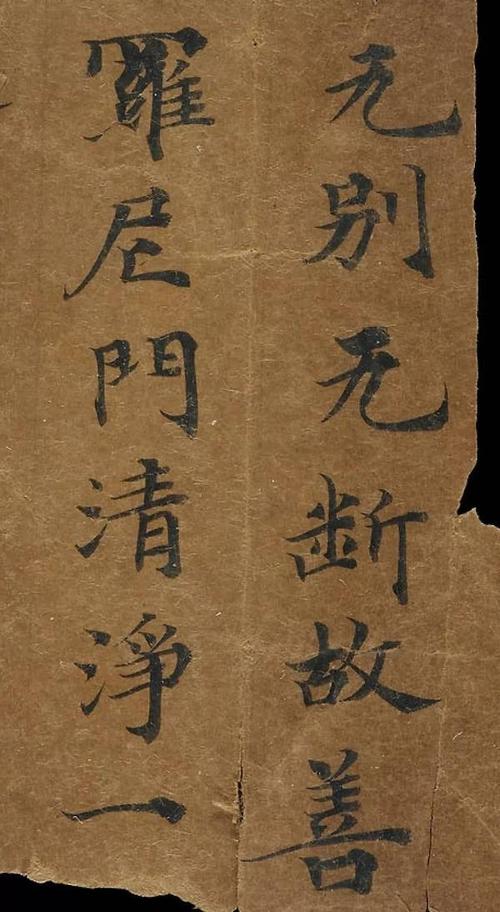 无别无断故善
羅尼門清淨一